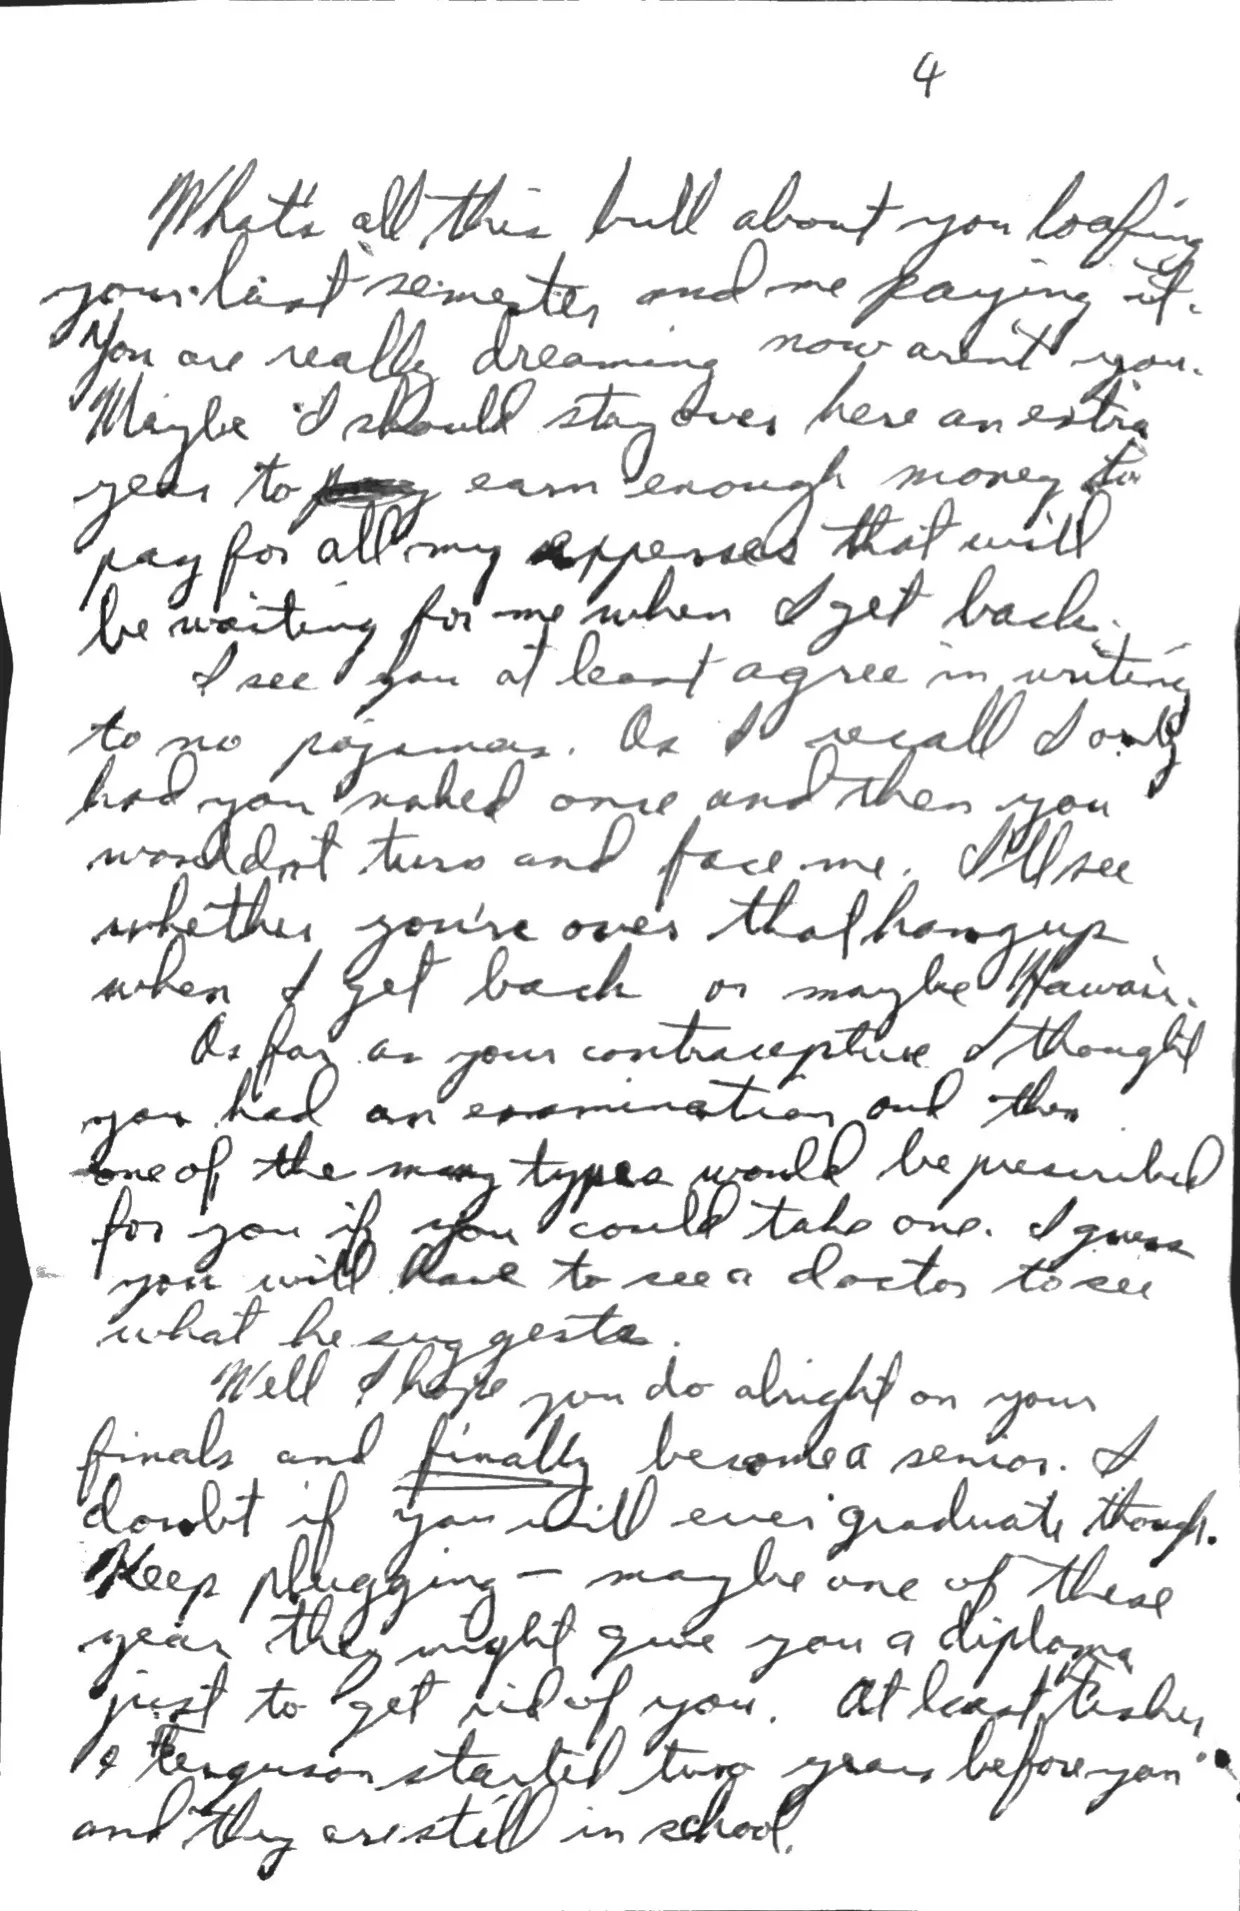 4
What's all this bull about you loafing
your last semester and me paying it.
You are really dreaming now aren't you.
Maybe I should stay over here an extra
year to earn enough money to
pay for all my expenses that will
be waiting for me when I get back.
I see you at least agree in writing
to no pajamas. As I recall I only
had you naked once and then you
wouldn't turn and face me. I'll see
whether you're over that hangup
when I get back or maybe Hawaii.
As far as your contraceptive I thought
you had an examination and then
one of the many types would be prescribed
for you if you could take one. I guess
you will have to see a doctor to see
what he suggests.
Well I hope you do alright on your
finals and finally become a senior. I
doubt if you will ever graduate though.
Keep plugging - maybe one of these
years they might give you a diploma
just to get rid of you. At least
& Ferguson started two years before you
and they are still in school.